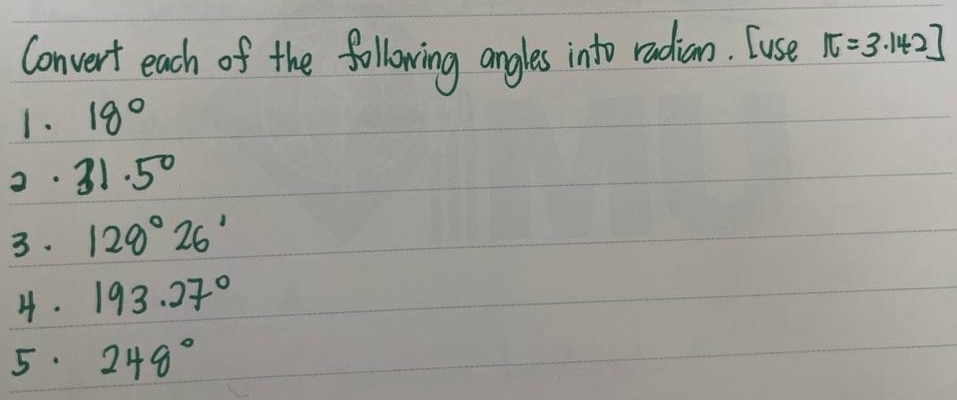 Convert each of the following angles into radian. [use π = 3.142]
1. 18°
2. 31.5°
3. 128° 26'
4. 193.27°
5. 248°
MU